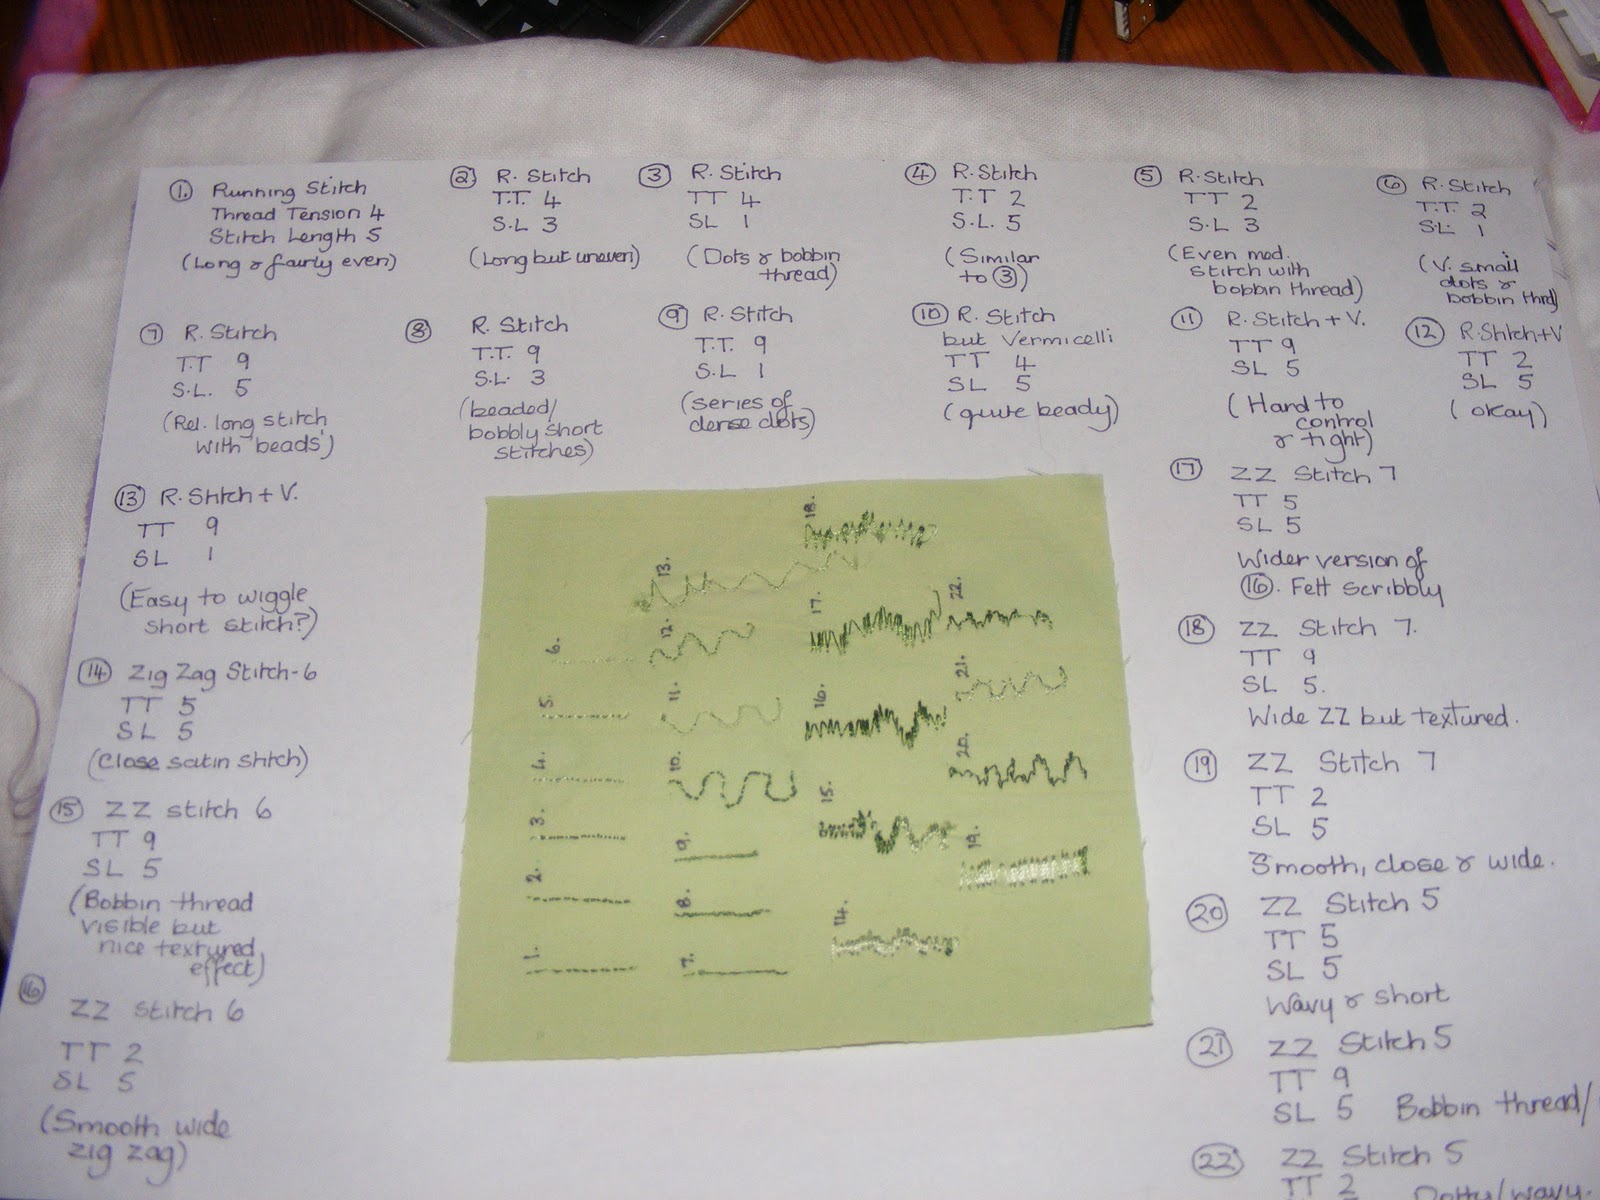 1. Running Stitch
Thread Tension 4
Stitch Length 5
(Long & fairly even)
2. R. Stitch
T.T. 4
S.L 3
(Long but uneven)
3 R. Stitch
TT 4
SL 1
(Dots & bobbin
thread)
4 R. Stitch
T.T 2
S.L. 5
(Similar
to 3)
5 R. Stitch
TT 2
SL 3
(Even med.
stitch with
bobbin thread)
6 R. Stitch
T.T. 2
SL. 1
(V. small
dots &
bobbin thrd)
7 R. Stitch
T.T 9
S.L. 5
(Rel. long stitch
with 'beads')
8 R. Stitch
T.T. 9
S.L. 3
(beaded/
bobbly short
stitches)
9 R. Stitch
T.T. 9
S.L 1
(series of
dense dots)
10 R. Stitch
but Vermicelli
TT 4
SL 5
(quite beady)
11 R. Stitch + V.
TT 9
SL 5
(Hard to
control
& tight)
12 R. Stitch + V
TT 2
SL 5
(okay)
13 R. Stitch + V.
TT 9
SL 1
(Easy to wiggle
short stitch?)
14 Zig Zag Stitch - 6
TT 5
SL 5
(Close satin stitch)
15 ZZ stitch 6
TT 9
SL 5
(Bobbin thread
visible but
nice textured
effect)
16 ZZ stitch 6
TT 2
SL 5
(Smooth wide
zig zag)
17 ZZ Stitch 7
TT 5
SL 5
Wider version of
16. Felt scribbly
18 ZZ Stitch 7.
TT 9
SL 5.
Wide ZZ but textured.
19 ZZ Stitch 7
TT 2
SL 5
Smooth, close & wide.
20 ZZ Stitch 5
TT 5
SL 5
Wavy & short
21 ZZ Stitch 5
TT 9
SL 5 Bobbin thread/
22 ZZ Stitch 5
TT 2 Dotty/wavy.
1.
2.
3.
4.
5.
6.
7.
8.
9.
10.
11.
12.
13.
14.
15.
16.
17.
18.
19.
20.
21.
22.